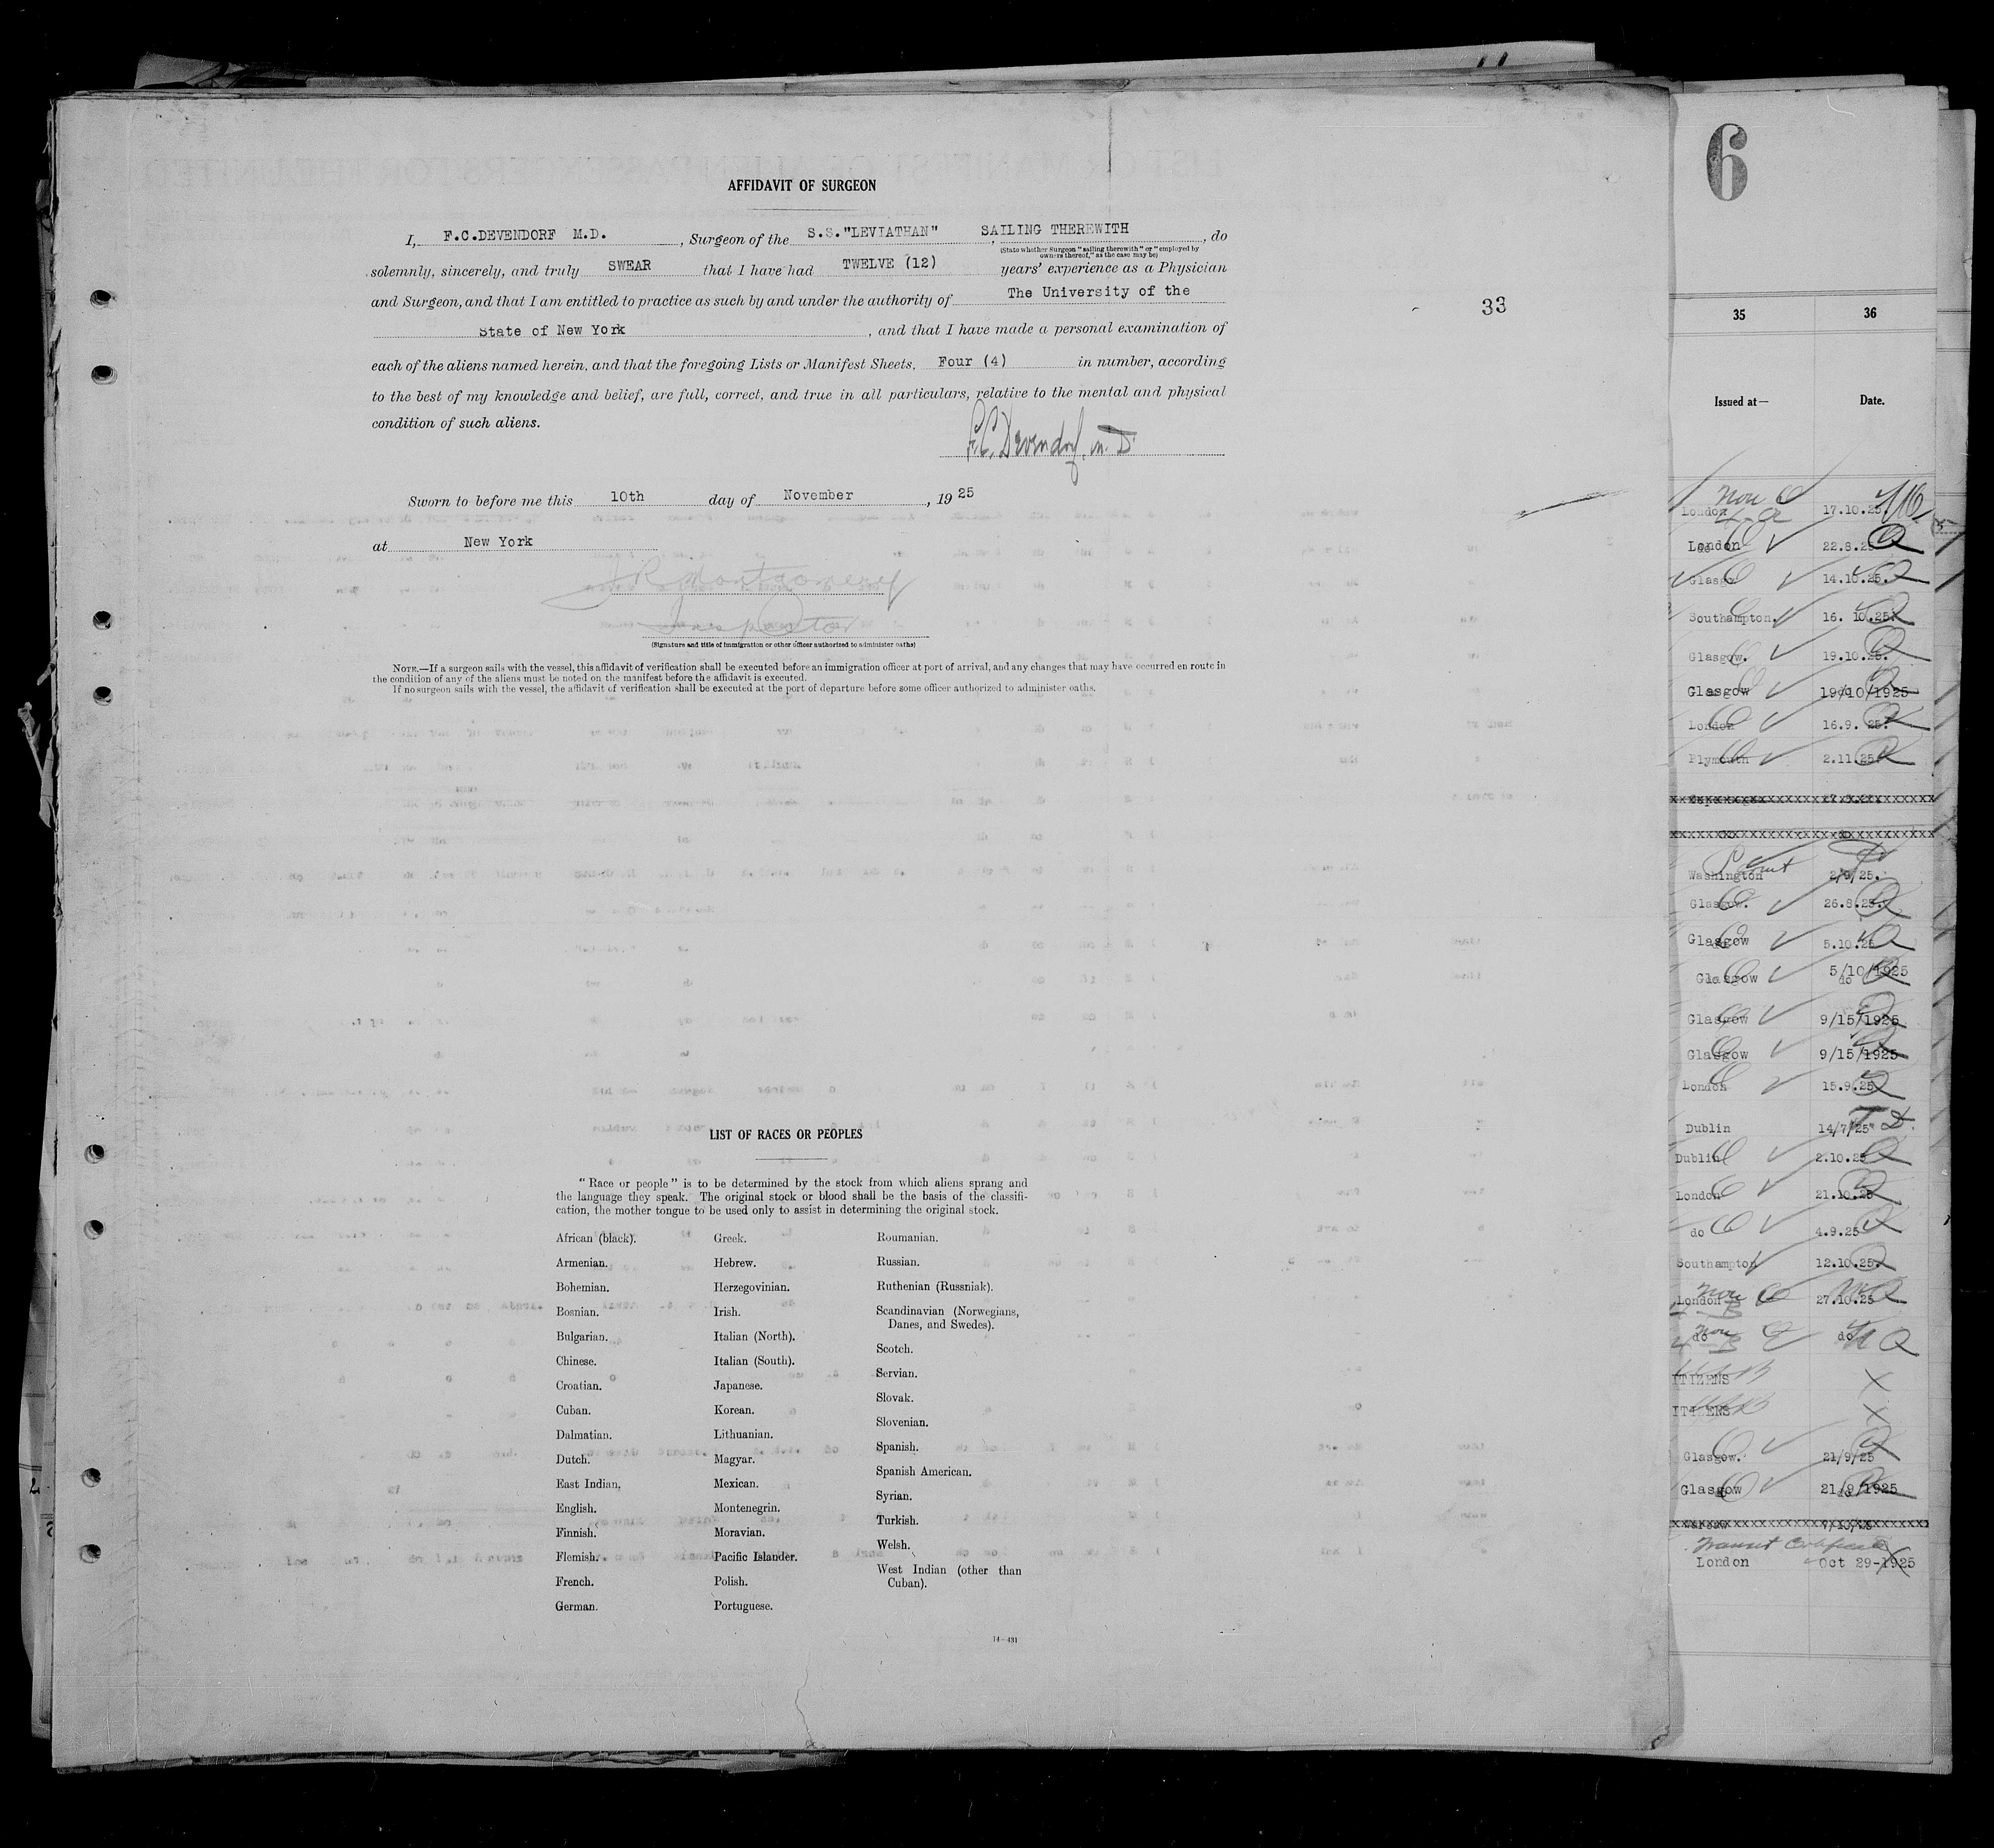 AFFIDAVIT OF SURGEON
I, F.C.DEVENDORF M.D. , Surgeon of the S.S."LEVIATHAN" , SAILING THEREWITH , do
(State whether Surgeon "sailing therewith" or "employed by
owners thereof," as the case may be)
solemnly, sincerely, and truly SWEAR that I have had TWELVE (12) years' experience as a Physician
and Surgeon, and that I am entitled to practice as such by and under the authority of The University of the
State of New York , and that I have made a personal examination of
each of the aliens named herein, and that the foregoing Lists or Manifest Sheets, Four (4) in number, according
to the best of my knowledge and belief, are full, correct, and true in all particulars, relative to the mental and physical
condition of such aliens.
F.C. Devendorf, M.D.
Sworn to before me this 10th day of November , 19 25
at New York
J R Montgomery
Inspector
(Signature and title of immigration or other officer authorized to administer oaths)
NOTE.—If a surgeon sails with the vessel, this affidavit of verification shall be executed before an immigration officer at port of arrival, and any changes that may have occurred en route in
the condition of any of the aliens must be noted on the manifest before the affidavit is executed.
If no surgeon sails with the vessel, the affidavit of verification shall be executed at the port of departure before some officer authorized to administer oaths.
33
LIST OF RACES OR PEOPLES
"Race or people" is to be determined by the stock from which aliens sprang and
the language they speak. The original stock or blood shall be the basis of the classifi-
cation, the mother tongue to be used only to assist in determining the original stock.
African (black).
Armenian.
Bohemian.
Bosnian.
Bulgarian.
Chinese.
Croatian.
Cuban.
Dalmatian.
Dutch.
East Indian.
English.
Finnish.
Flemish.
French.
German.
Greek.
Hebrew.
Herzegovinian.
Irish.
Italian (North).
Italian (South).
Japanese.
Korean.
Lithuanian.
Magyar.
Mexican.
Montenegrin.
Moravian.
Pacific Islander.
Polish.
Portuguese.
Roumanian.
Russian.
Ruthenian (Russniak).
Scandinavian (Norwegians,
Danes, and Swedes).
Scotch.
Servian.
Slovak.
Slovenian.
Spanish.
Spanish American.
Syrian.
Turkish.
Welsh.
West Indian (other than
Cuban).
14—431
6
35 36
Issued at— Date.
London 17.10.25
London 22.8.25
Glasgow 14.10.25.
Southampton. 16. 10.25.
Glasgow. 19.10.25.
Glasgow 19/10/1925
London 16.9. 25.
Plymouth 2.11.25.
Washington 2/9/25.
Glasgow. 26.8.25.
Glasgow 5.10.25
Glasgow 5/10/1925
Glasgow 9/15/1925
Glasgow 9/15/1925
London 15.9.25
Dublin 14/7/25
Dublin 2.10.25
London 21.10.25
do 4.9.25
Southampton 12.10.25.
London 27.10.25
do do
ITIZENS
ITIZENS
Glasgow. 21/9/25
Glasgow 21/9/1925
Transit Certificate
London Oct 29-1925